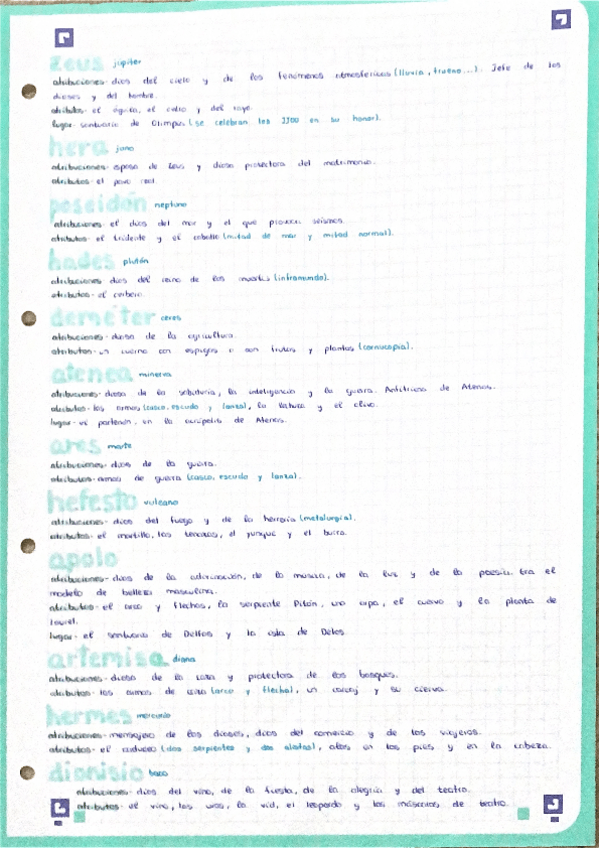 zeus júpiter
atribuciones- dios del cielo y de los fenómenos atmosféricos (lluvia, trueno...). Jefe de los
dioses y del hombre.
atributos- el águila, el cetro y del rayo.
lugar- santuario de Olimpia (se celebran los JJOO en su honor).
hera juno
atribuciones- esposa de Zeus y diosa protectora del matrimonio.
atributos- el pavo real.
poseidón neptuno
atribuciones- el dios del mar y el que provoca seísmos.
atributos- el tridente y el caballo (mitad de mar y mitad normal).
hades plutón
atribuciones- dios del reino de los muertos (inframundo).
atributos- el cerbero.
deméter ceres
atribuciones- diosa de la agricultura.
atributos- un cuerno con espigas o con frutos y plantas (cornucopia).
atenea minerva
atribuciones- diosa de la sabiduría, la inteligencia y la guerra. de Atenas.
atributos- las armas (casco, escudo y lanza), la lechuza y el olivo.
lugar- el partenón, en la acrópolis de Atenas.
ares marte
atribuciones- dios de la guerra.
atributos- armas de guerra (casco, escudo y lanza).
hefesto vulcano
atribuciones- dios del fuego y de la herrería (metalurgia).
atributos- el martillo, las tenazas, el yunque y el burro.
apolo
atribuciones- dios de la adivinación, de la música, de la luz y de la poesía. Era el
modelo de belleza masculina.
atributos- el arco y flechas, la serpiente Pitón, una arpa, el cuervo y la planta de
laurel.
lugar- el santuario de Delfos y la isla de Delos.
artemisa diana
atribuciones- diosa de la caza y protectora de los bosques.
atributos- las armas de caza (arco y flecha), un carcaj y su cierva.
hermes mercurio
atribuciones- mensajero de los dioses, dios del comercio y de los viajeros.
atributos- el caduceo (dos serpientes y dos aladas), alas en los pies y en la cabeza.
dionisio baco
atribuciones- dios del vino, de la fiesta, de la alegría y del teatro.
atributos- el vino, las uvas, la vid, el leopardo y las máscaras de teatro.